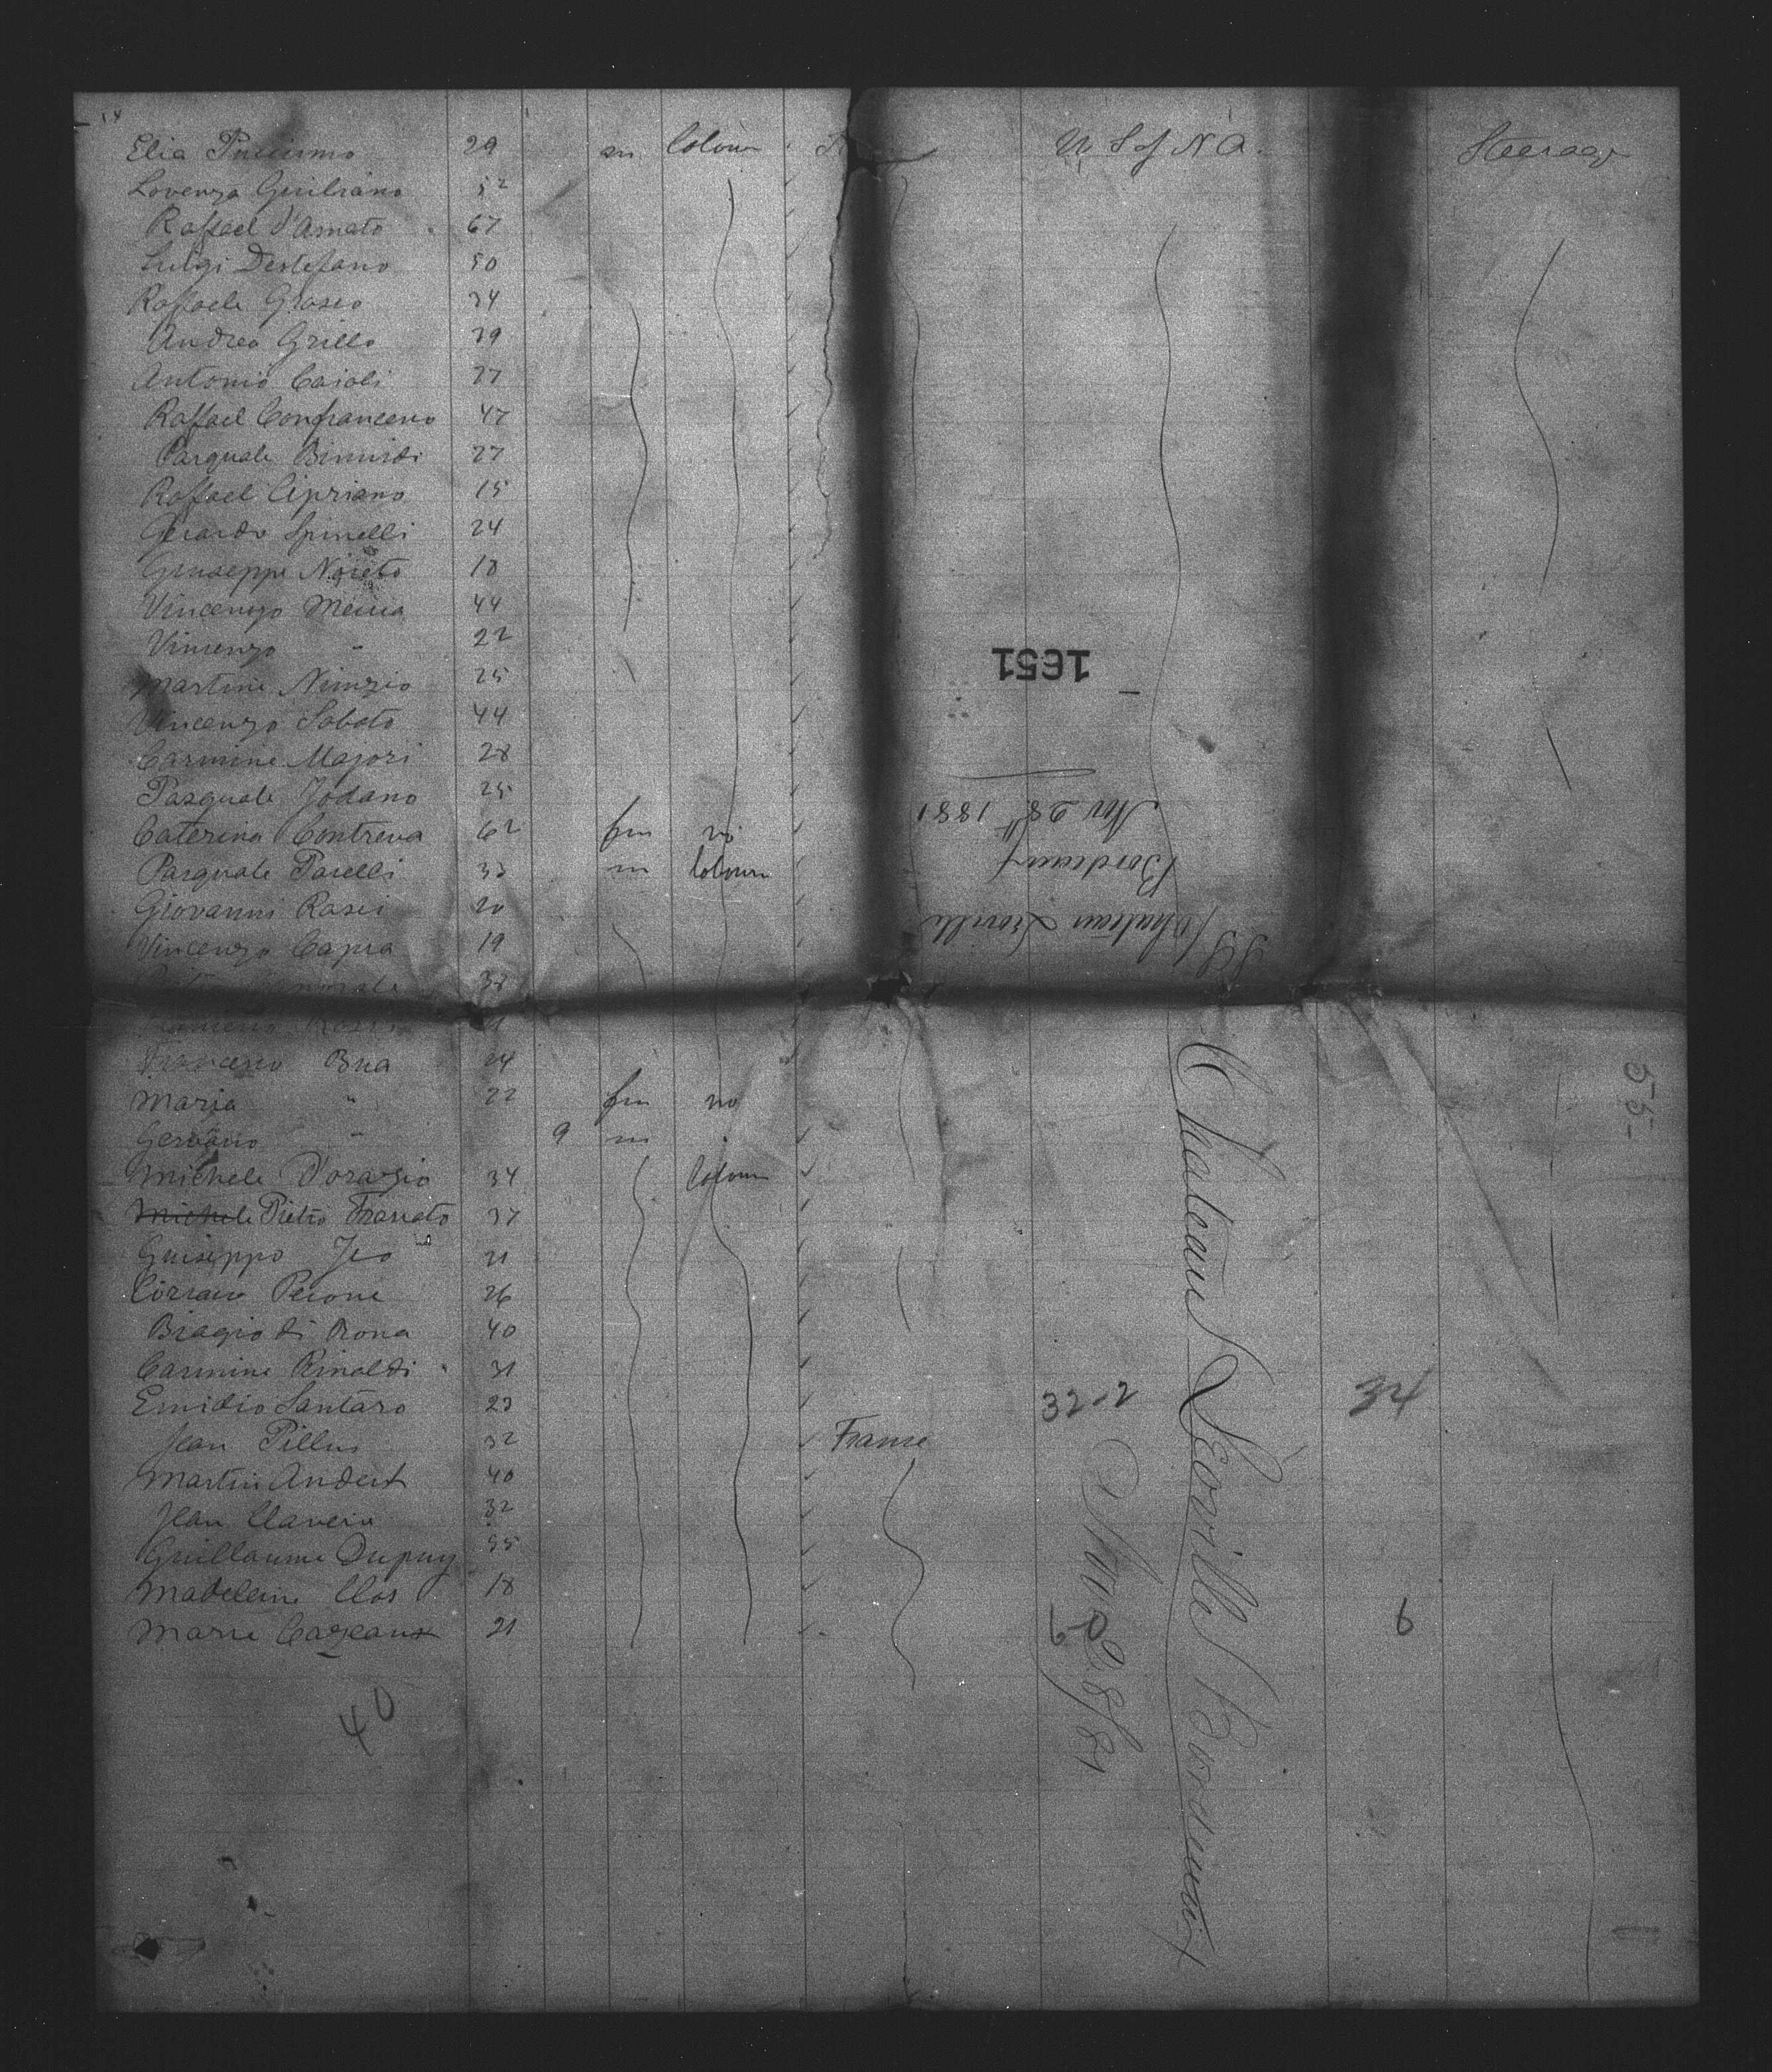 Elia 29 m Colour U S of N A. Steerage
Lorenza Giuliano 52
Raffael d'Amato 67
Luigi Destefano 50
Raffaele Grosso 34
Andrea Grillo 39
Antonio Caioli 27
Raffael Confrancesco 47
Pasquale 27
Raffael Cipriano 15
Gerardo Spinelli 24
Giuseppe 18
Vincenzo 44
Vincenzo " 22
Martini Nunzio 25
Vincenzo Sabato 44
Carmine Majori 28
Pasquale Jodano 25
Caterina Contrena 62 fm no
Pasquale Parelli 33 m Colour
Giovanni Rasci 20
Vincenzo Capra 19
38
Francesco Bua 24
Maria " 22 fm no
" 9 m
Michele D'orazio 34 Colour
Michele Pietro 37
Guiseppo Jeo 21
Perone 26
Biagio di Rona 40
Carmine Rinaldi 31
Emidio Santaro 23
Jean Pillus 32 France
Martin Andert 40
Jean Claverie 32
Guillaume Dupuy 55
Madeleine Clos 18
Marie Cazeaux 21
40
1651
SS Chateau Leoville
Bordeaux
Nov 28th 1881
Chateau Leoville Bordeaux
Nov 28/81
32-2 34
6-0 6
55-